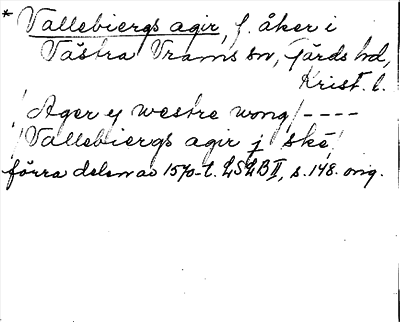 * Vallebiergs agir, f. åker i
Västra Vrams sn, Gärds hd,
Krist. l.
/Ager ej westre wong/ ----
/Vallebiergs agir j skẽ/
förra delen av 1570-t. LSLB II, s. 148. orig.